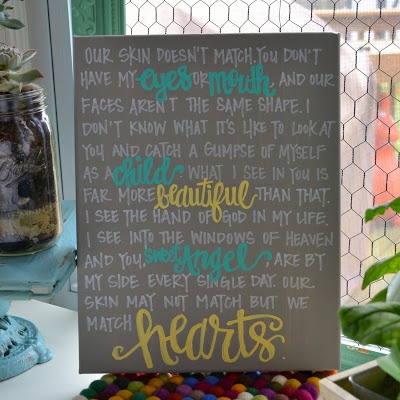 OUR SKIN DOESN'T MATCH. YOU DON'T
HAVE MY eyes OR mouth AND OUR
FACES AREN'T THE SAME SHAPE. I
DON'T KNOW WHAT IT'S LIKE TO LOOK AT
YOU AND CATCH A GLIMPSE OF MYSELF
AS A child. WHAT I SEE IN YOU IS
FAR MORE beautiful THAN THAT.
I SEE THE HAND OF GOD IN MY LIFE.
I SEE INTO THE WINDOWS OF HEAVEN
AND YOU, sweet Angel ARE BY
MY SIDE EVERY SINGLE DAY. OUR
SKIN MAY NOT MATCH BUT WE
MATCH hearts.